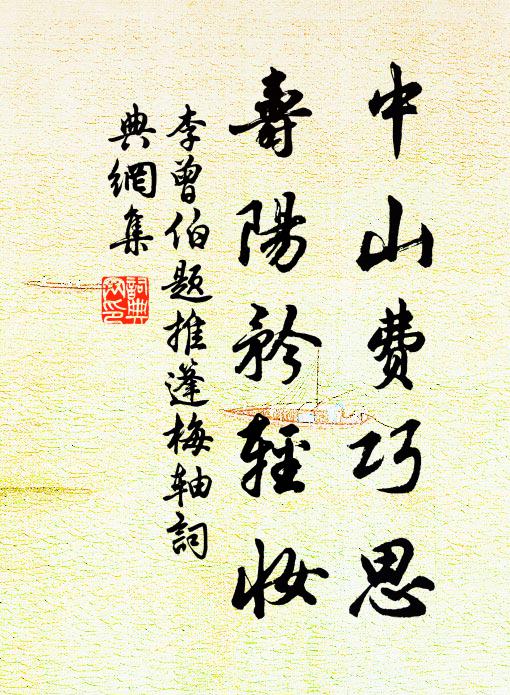 中山費巧思
壽陽矜輕妝
李曾伯題推篷梅轴詞
典網集
詞典
网印